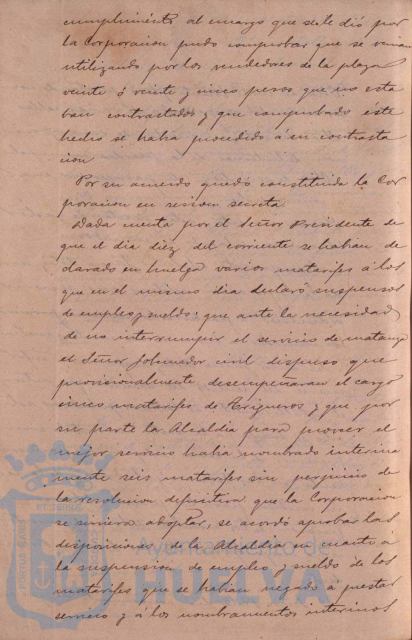 cumplimiento al encargo que se le dió por
la Corporacion pudo comprobar que se venian
utilizando por los vendedores de la plaza
veinte ó veinte y cinco pesos que no esta
ban contractados y que comprobado éste
hecho se habia procedido á su contrasta
cion
Por su acuerdo quedó constituida la Cor
poracion en sesion secreta
Dada cuenta por el Señor Presidente de
que el dia diez del corriente se habian de
clarado en huelga varios matarifes á los
que en el mismo dia declaró suspensos
de empleo y sueldo: que ante la necesidad
de no interrumpir el servicio de matanza
el Señor Gobernador civil dispuso que
provisionalmente desempeñaran el cargo
cinco matarifes de Trigueros y que por
su parte la Alcaldia para proveer el
mejor servicio habia nombrado interina
mente seis matarifes sin perjuicio de
la resolucion definitiva que la Corporacion
se sirviera adoptar, se acordó aprobar las
disposiciones de la Alcaldia en cuanto á
la suspension de empleo y sueldo de los
matarifes que se habian negado á prestar
servicio y á los nombramientos interinos
PORTUS MARIS
ET TERRAE
Ayuntamiento de
HUELVA